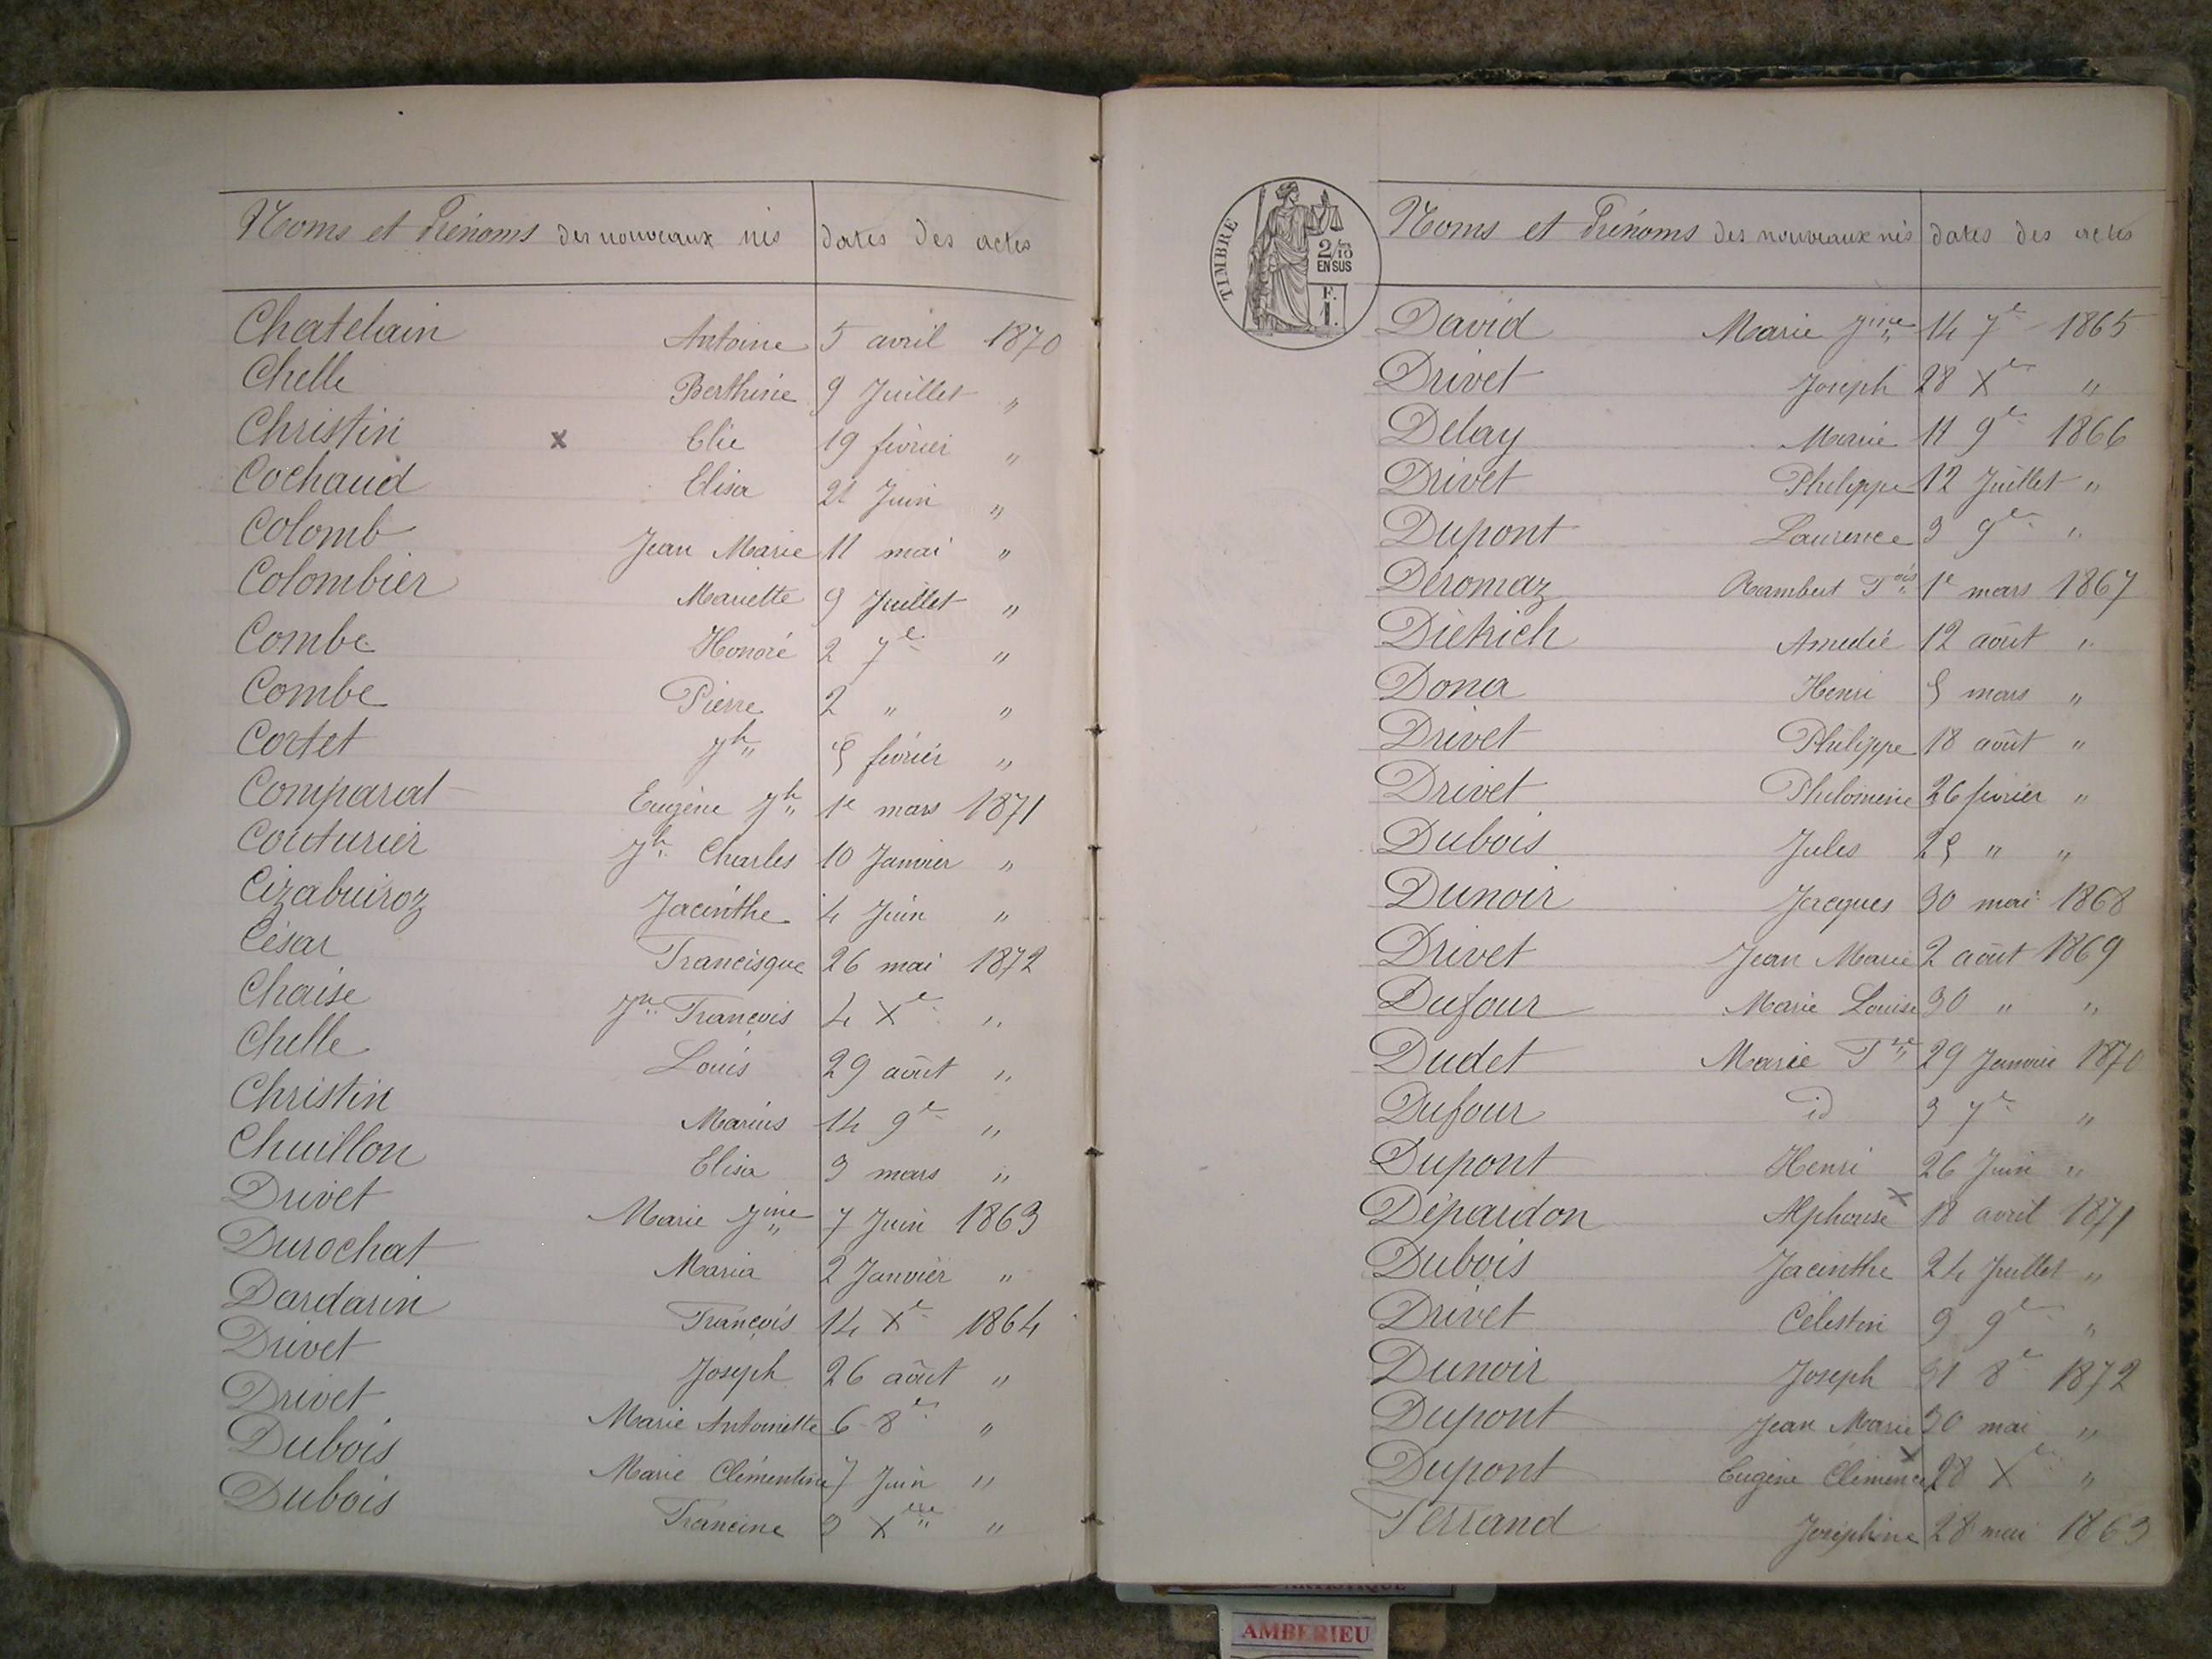 Noms et Prénoms des nouveaux nés dates des actes
Chatelain Antoine 5 avril 1870
Chelle Berthine 9 Juillet "
Christin x Elie 19 février "
Cochaud Elisa 21 Juin "
Colomb Jean Marie 11 mai "
Colombier Mariette 9 Juillet "
Combe Honoré 2 7e "
Combe Pierre 2 " "
Cortet Jh 5 février "
Comparat Eugène Jh 1e mars 1871
Couturier Jh Charles 10 Janvier "
Cizabuiroz Jacinthe 4 Juin "
César Francisque 26 mai 1872
Chaise Jn François 4 Xe "
Chelle Louis 29 août "
Christin Marius 14 9e "
Chuillon Elisa 3 mars "
Drivet Marie Jine 7 Juin 1863
Durochat Maria 2 Janvier "
Dardarin François 14 Xe 1864
Drivet Joseph 26 août "
Drivet Marie Antoinette 6 8e "
Dubois Marie Clémentine 7 Juin "
Dubois Francine 3 Xe "
TIMBRE
2/10
EN SUS
F.
1.
Noms et Prénoms des nouveaux nés dates des actes
David Marie Jine 14 7e 1865
Drivet Joseph 28 Xe "
Delay Marie 11 9e 1866
Drivet Philippe 12 Juillet "
Dupont Laurence 3 9e "
Déromaz Rambert Fois 1e mars 1867
Diétrich Amedée 12 août "
Dona Henri 5 mars "
Drivet Philippe 18 août "
Drivet Philomène 26 février "
Dubois Jules 25 " "
Dunoir Jacques 30 mai 1868
Drivet Jean Marie 2 août 1869
Dufour Marie Louise 30 " "
Dudet Marie Fse 29 Janvier 1870
Dufour id 3 7e "
Dupont Henri 26 Juin "
Dépardon Alphonse x 18 avril 1871
Dubois Jacinthe 24 Juillet "
Drivet Célestin 9 9e "
Dunoir Joseph 31 8e 1872
Dupont Jean Marie 30 mai "
Dupont Eugène Clémence x 28 Xe "
Ferrand Joséphine 28 mai 1863
AMBERIEU